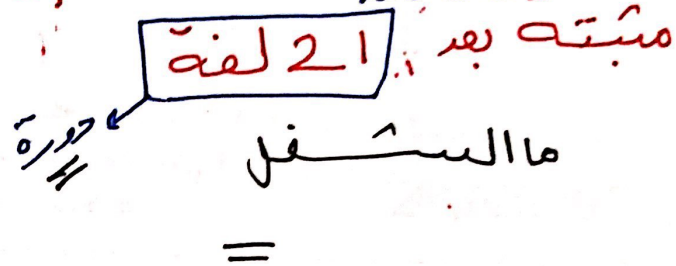 مثبته بعد 21 لفة
دورة
ما الشغل
=